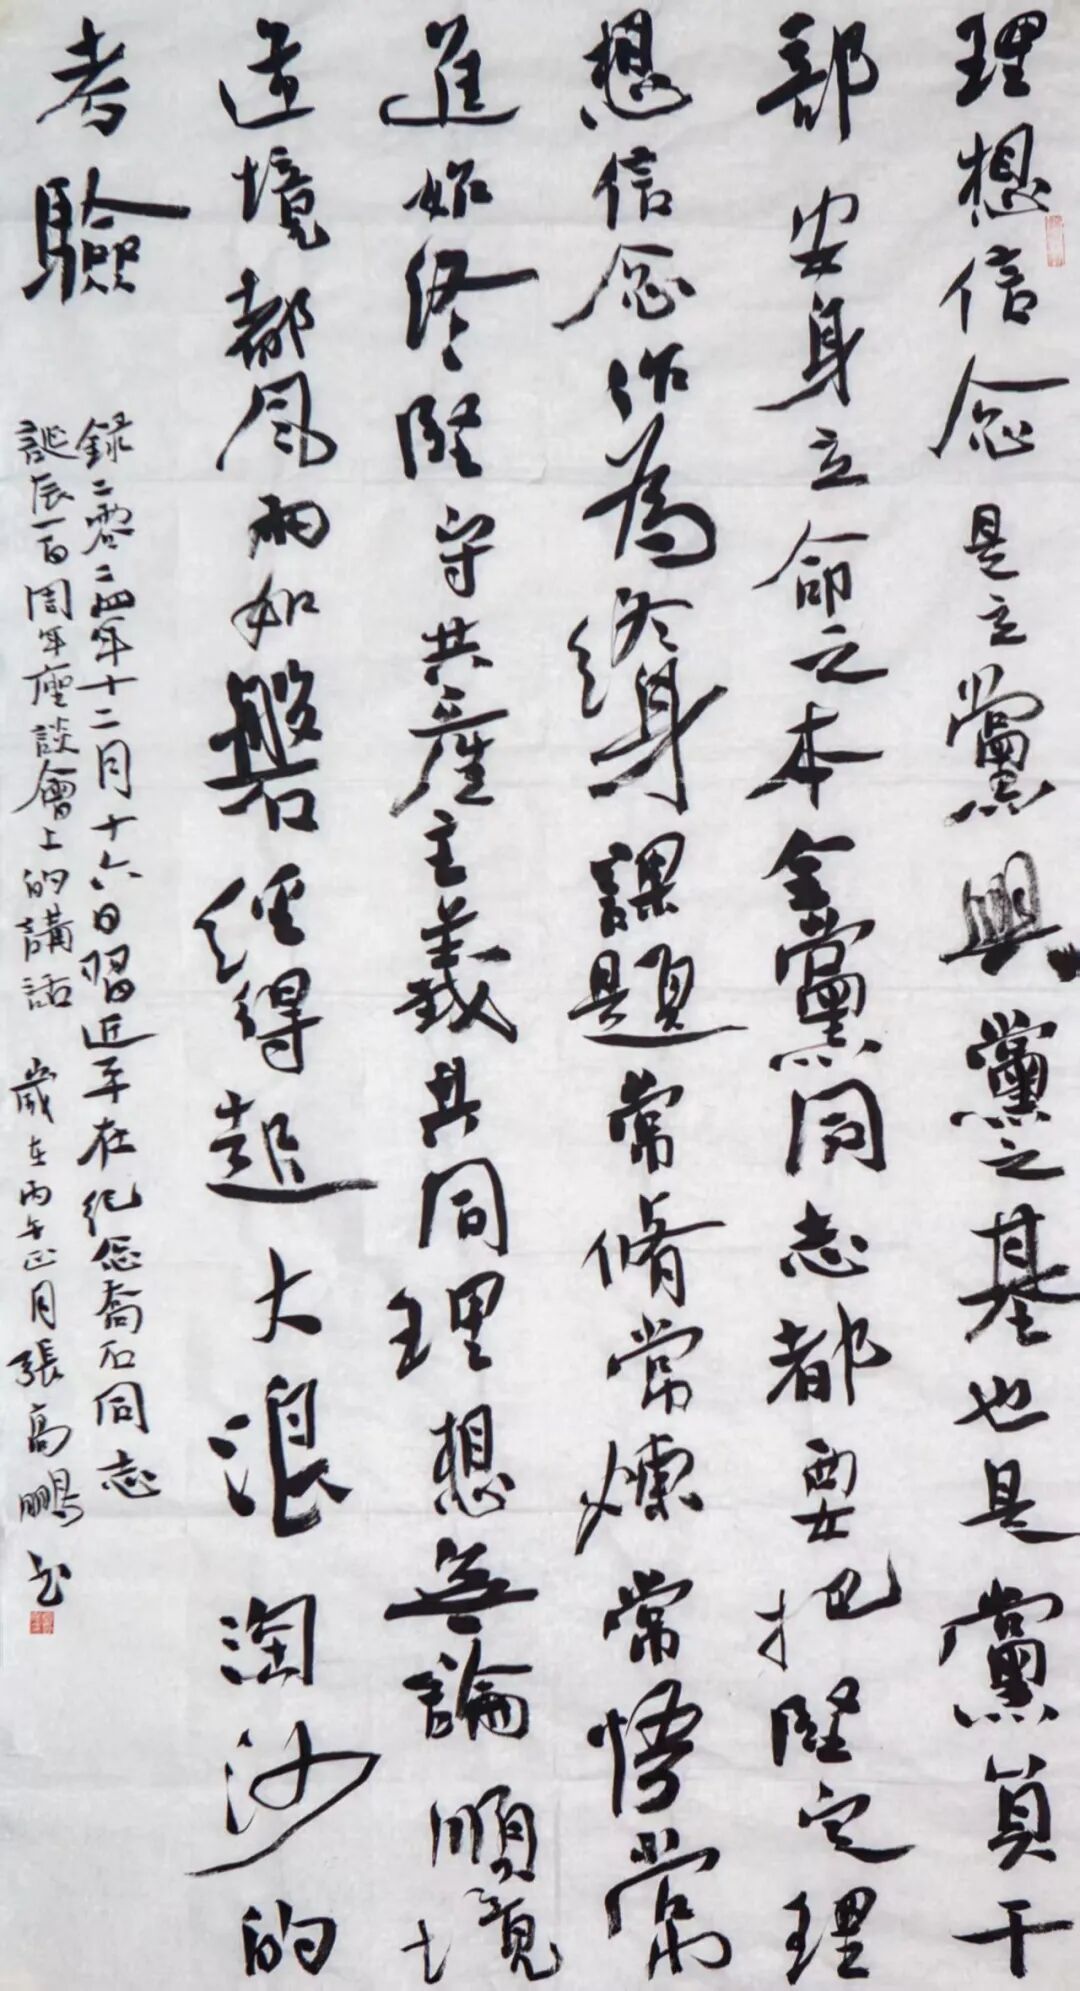 理想信念是立黨興黨之基也是黨員干
部安身立命之本全黨同志都要把堅定理
想信念作為終身課題常脩常煉常悟常
進始終堅守共產主義共同理想無論順境
逆境都風雨如磐經得起大浪淘沙的
考驗
錄二零二四年十二月十六日習近平在紀念喬石同志
誕辰一百周年座談會上的講話 歲在丙午正月張高鵬书